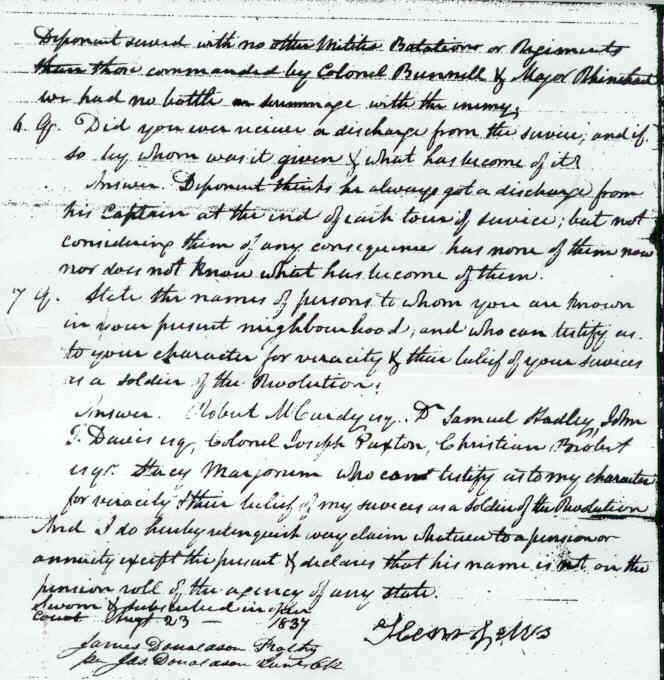 Deponent served with no other Militia Batalions or Regiments
than those commanded by Colonel Bunnell & Major Rhinehart
we had no battle or scrimmage with the enemy.
6. Q. Did you ever reciever a discharge from the service; and if
so by whom was it given & what has become of it?
Answer. Deponent thinks he always got a discharge from
his Captain at the end of each tour of service; but not
considering them of any consequence has none of them now
nor does not know what has become of them.
7 Q. State the names of persons to whom you are known
in your present neighbourhood, and who can testify as
to your character for veracity & their belief of your services
as a soldier of the Revolution.
Answer. Robert McCurdy esq. Dr Samuel Hadley, John
T. Davis esq, Colonel Joseph Paxton, Christian Brobst
esqr. Stacy Marjorum who can testify as to my character
for veracity & their belief of my services as a soldier of the Revolution
And I do hereby relenquish every claim whatever to a pension or
annuity except the present & declares that his name is not on the
pension roll of the agency of any state.
Sworn & subscribed in open
Court Augt 23 — 1837
James Donaldson Prothy
per Jas. Donaldson